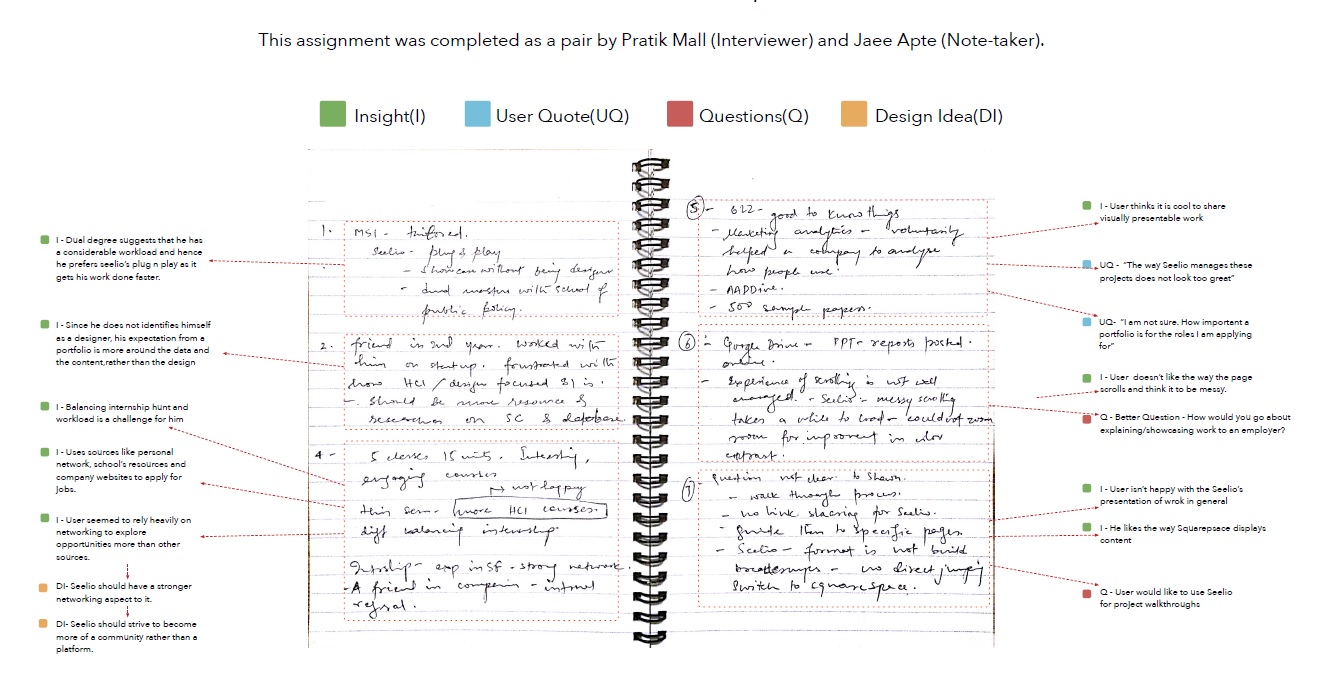 This assignment was completed as a pair by Pratik Mall (Interviewer) and Jaee Apte (Note-taker).
Insight(I)
User Quote(UQ)
Questions(Q)
Design Idea(DI)
I - Dual degree suggests that he has
a considerable workload and hence
he prefers seelio's plug n play as it
gets his work done faster.
I - Since he does not identifies himself
as a designer, his expectation from a
portfolio is more around the data and
the content,rather than the design
I - Balancing internship hunt and
workload is a challenge for him
I - Uses sources like personal
network, school's resources and
company websites to apply for
Jobs.
I - User seemed to rely heavily on
networking to explore
opportunities more than other
sources.
DI- Seelio should have a stronger
networking aspect to it.
DI- Seelio should strive to become
more of a community rather than a
platform.
1. MSI - tailored.
Seelio - plug & play
- showcase without being designer
- dual masters with school of
public policy.
2. friend in 2nd year. worked with
him on startup. frustrated with
how HCI / design focused SI is.
- should be more resource &
research on SC & database
4 - 5 classes 15 units. Interesting,
engaging courses
→ not happy
this sem - more HCI courses.
diff balancing internship
Internship - exp in SF - strong network.
- A friend in companies - internal
referral.
5 - 622 - good to know things
- Marketing analytics - voluntarily
helped a company to analyse
how people use.
- AADDive.
- 500 sample papers.
6 - Google Drive - PPT - reports posted.
online.
- Experience of scrolling is not well
managed. - Seelio - messy scrolling
takes a while to load - could not zoom
room for improvment in color
contrast.
7 - Question not clear to Shawn.
- walk through process.
- no link sharing for Seelio.
- guide them to specific pages
- Seelio - format is not build
- no direct jumping
switch to squarespace.
I - User thinks it is cool to share
visually presentable work
UQ - "The way Seelio manages these
projects does not look too great"
UQ- "I am not sure. How important a
portfolio is for the roles I am applying
for"
I - User doesn't like the way the page
scrolls and think it to be messy.
Q - Better Question - How would you go about
explaining/showcasing work to an employer?
I - User isn't happy with the Seelio's
presentation of wrok in general
I - He likes the way Squarepsace displays
content
Q - User would like to use Seelio
for project walkthroughs